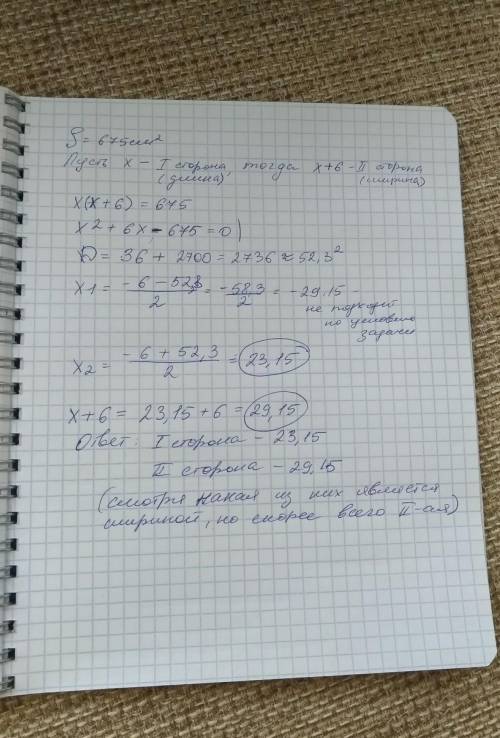 S = 675 см²
Пусть x – I сторона, тогда x+6 – II сторона
(длина) (ширина)
x(x+6) = 675
x² + 6x - 675 = 0)
D = 36 + 2700 = 2736 ≈ 52,3²
x1 = (-6 - 52,3)/2 = -58,3/2 = -29,15 -
не подходит
по условию
задачи
x2 = (-6 + 52,3)/2 = 23,15
x+6 = 23,15 + 6 = 29,15
Ответ: I сторона – 23,15
II сторона – 29,15
(смотря какая из них является
шириной, но скорее всего II-ая)